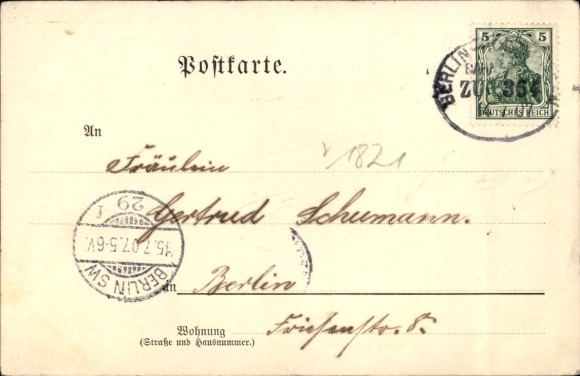 5 5
DEUTSCHES REICH
BERLIN
ZUG 364
Postkarte.
An
Fräulein
1821
Gertrud Schumann.
BERLIN SW
15.7.07.5-6V.
29 f
in Berlin
Wohnung
(Straße und Hausnummer.)
Friesenstr. 8.